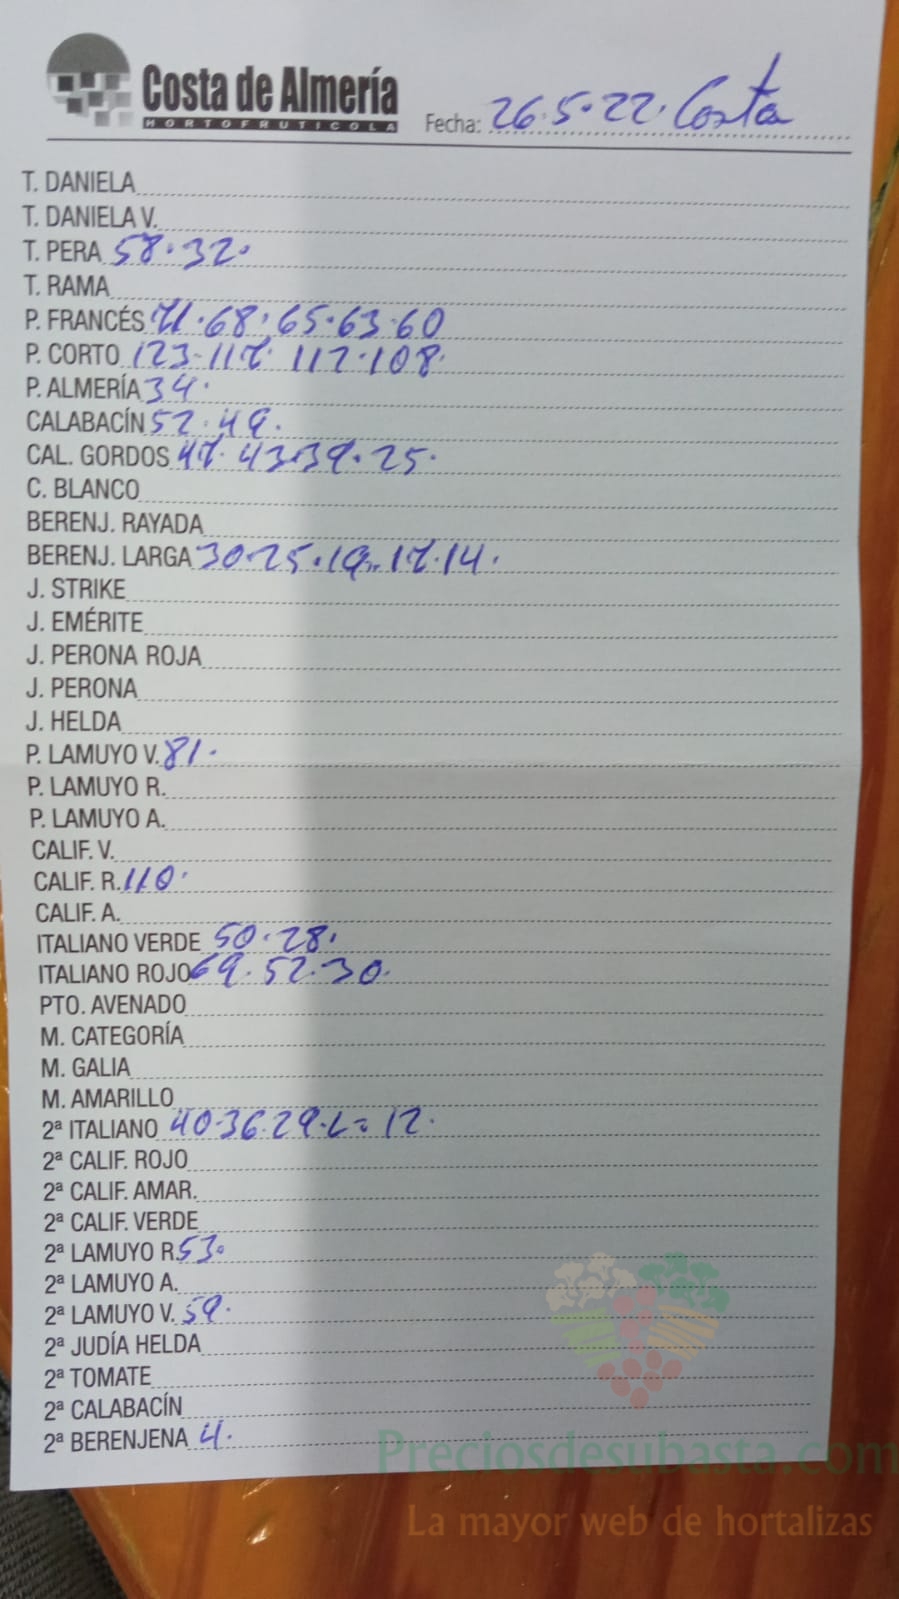 Costa de Almería
HORTOFRUTICOLA
Fecha: 26.5.22. Costa
T. DANIELA
T. DANIELA V.
T. PERA 58.32.
T. RAMA
P. FRANCÉS 71.68.65.63.60
P. CORTO 123-117. 112.108.
P. ALMERÍA 34.
CALABACÍN 52.49.
CAL. GORDOS 47. 43.39.25.
C. BLANCO
BERENJ. RAYADA
BERENJ. LARGA 30.25.19.17.14.
J. STRIKE
J. EMÉRITE
J. PERONA ROJA
J. PERONA
J. HELDA
P. LAMUYO V. 81.
P. LAMUYO R.
P. LAMUYO A.
CALIF. V.
CALIF. R. 110.
CALIF. A.
ITALIANO VERDE 50.28.
ITALIANO ROJO 69.52.30.
PTO. AVENADO
M. CATEGORÍA
M. GALIA
M. AMARILLO
2ª ITALIANO 40.36.29.L=12.
2ª CALIF. ROJO
2ª CALIF. AMAR.
2ª CALIF. VERDE
2ª LAMUYO R. 53.
2ª LAMUYO A.
2ª LAMUYO V. 59.
2ª JUDÍA HELDA
2ª TOMATE
2ª CALABACÍN
2ª BERENJENA 4.
Preciosdesubasta.com
La mayor web de hortalizas